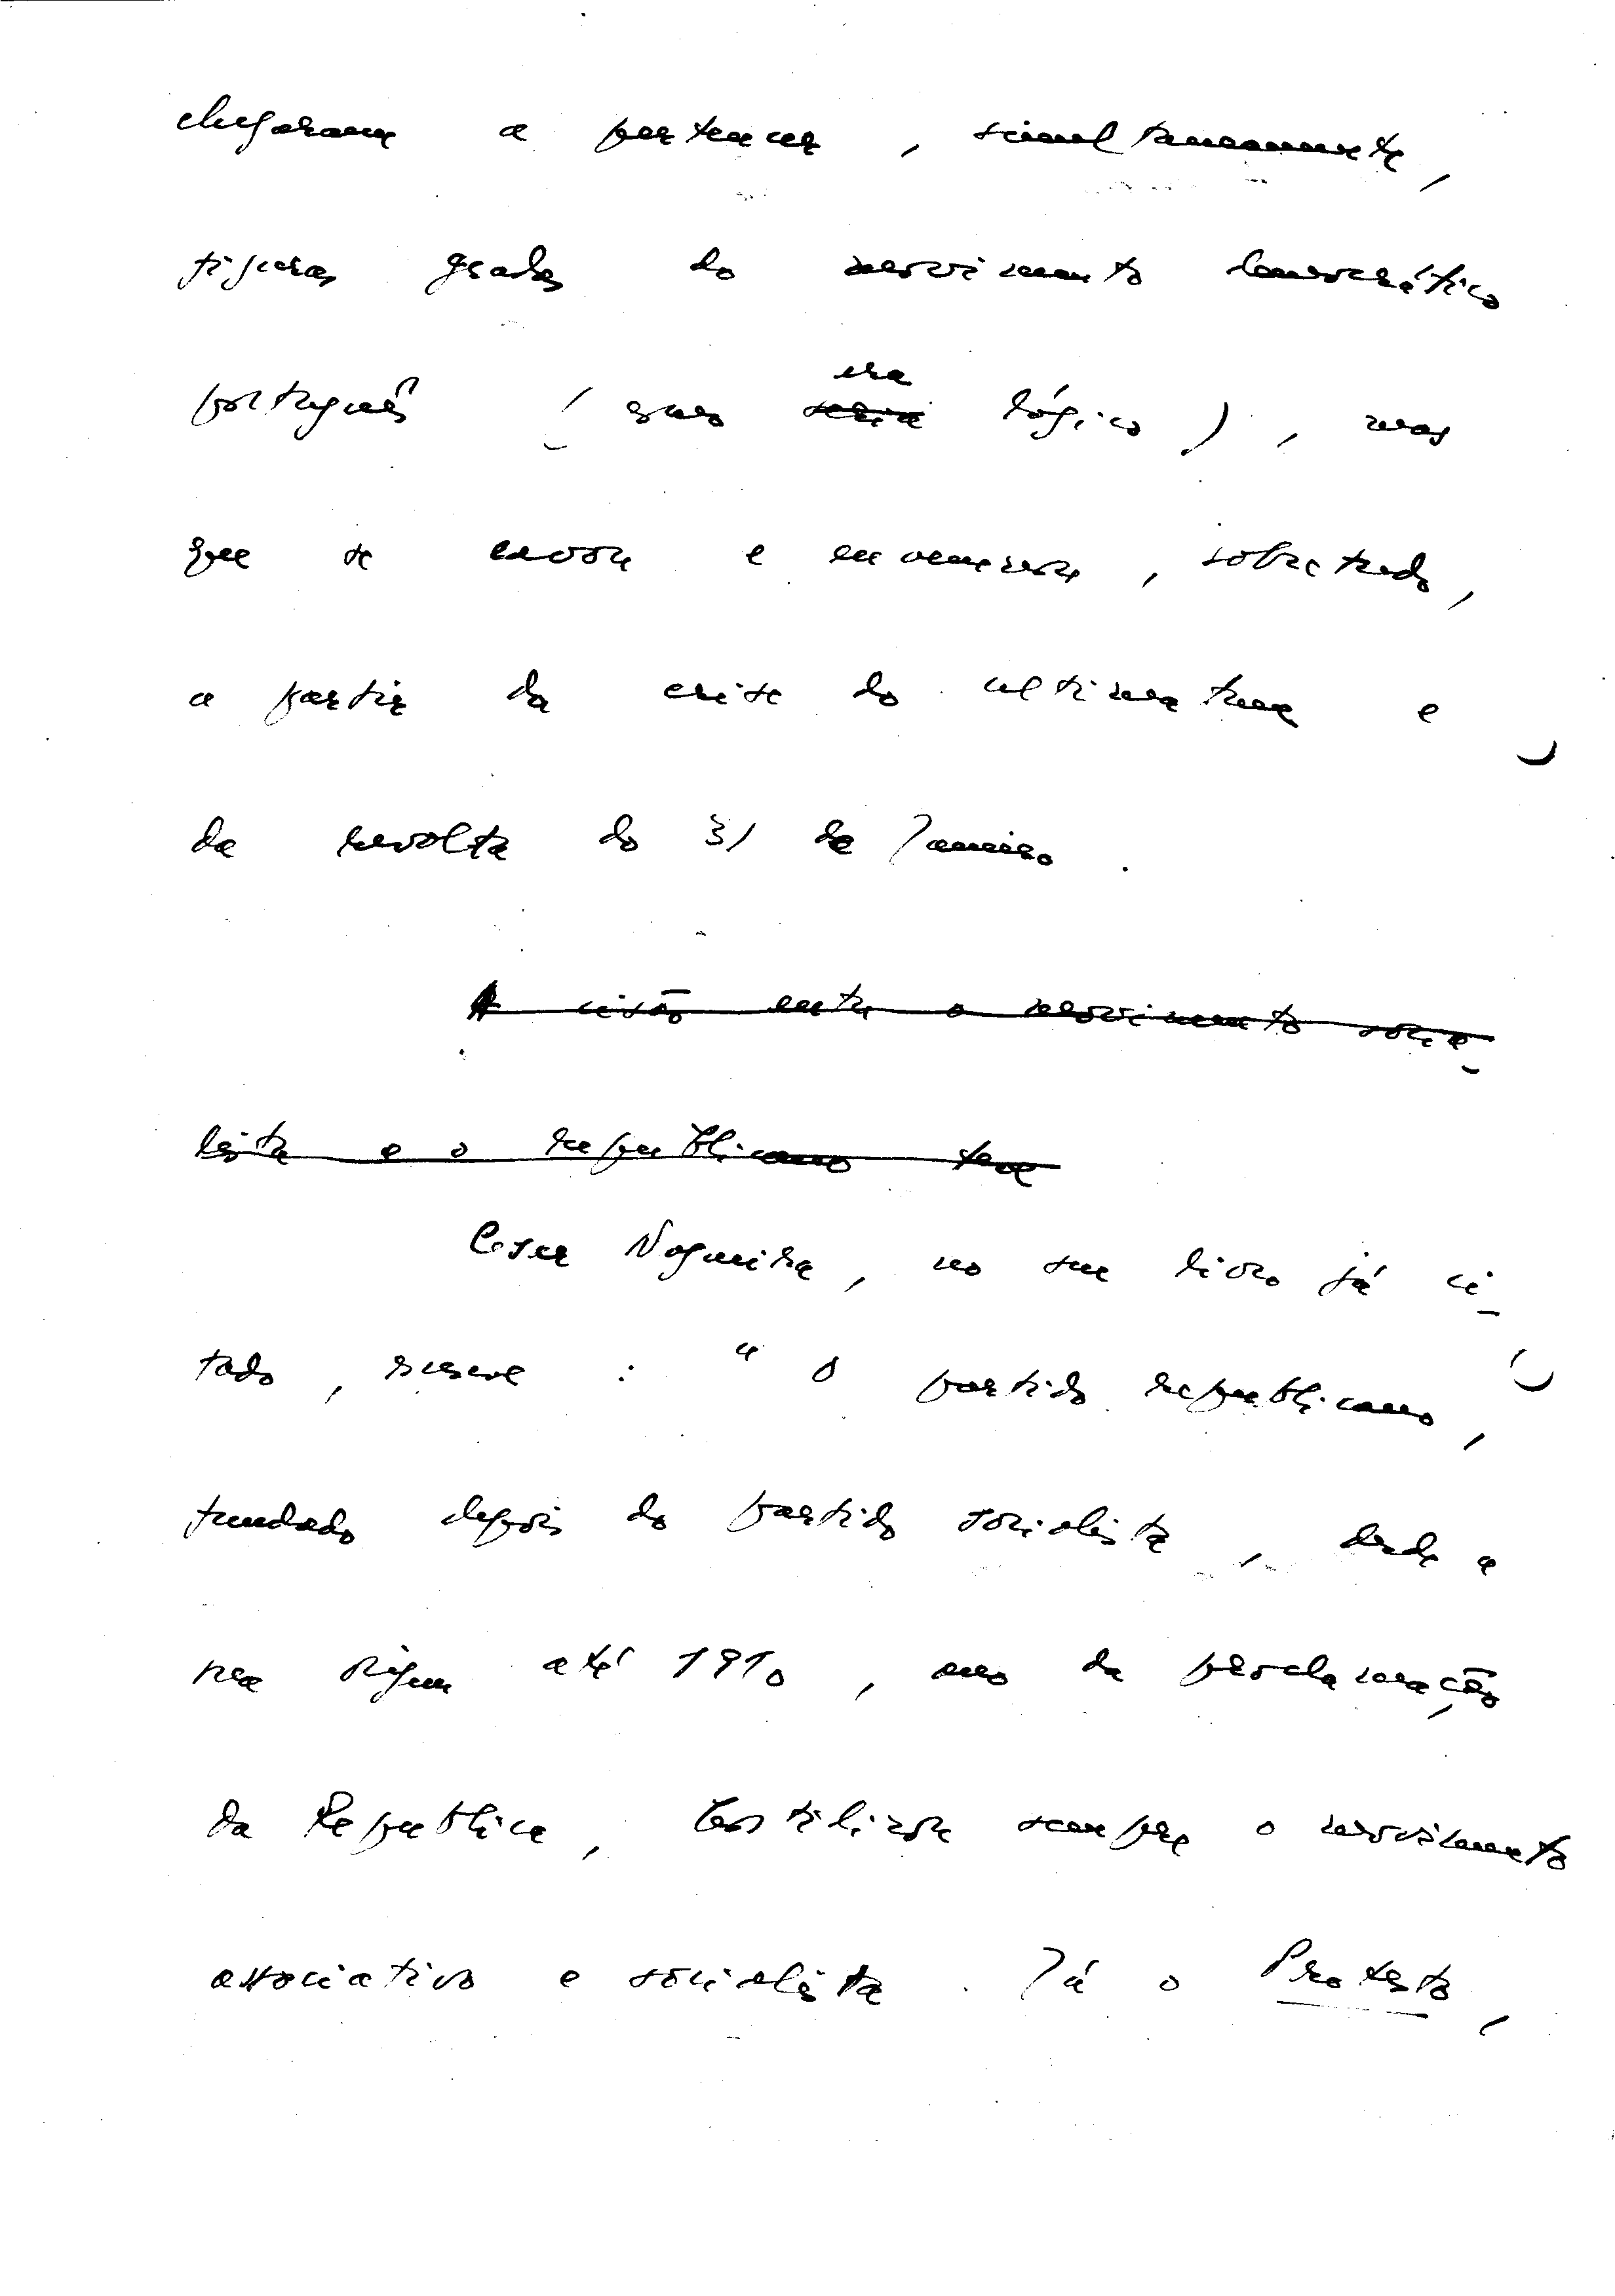 chegaram a pertencer, simultaneamente,
figuras gradas do movimento democrático
português ( era
seria lógico), mas
que se cavou e envenenou, sobretudo,
a partir da crise do ultimatum e
da revolta do 31 de Janeiro.
A cisão entre o movimento socia-
lista e o republicano teve
Cesar Nogueira, no seu livro já ci-
tado, escreve : "O partido republicano,
fundado depois do partido socialista, desde a
sua origem até 1910, ano da proclamação
da Republica, hostilizou sempre o movimento
associativo e socialista. Já o Protesto,